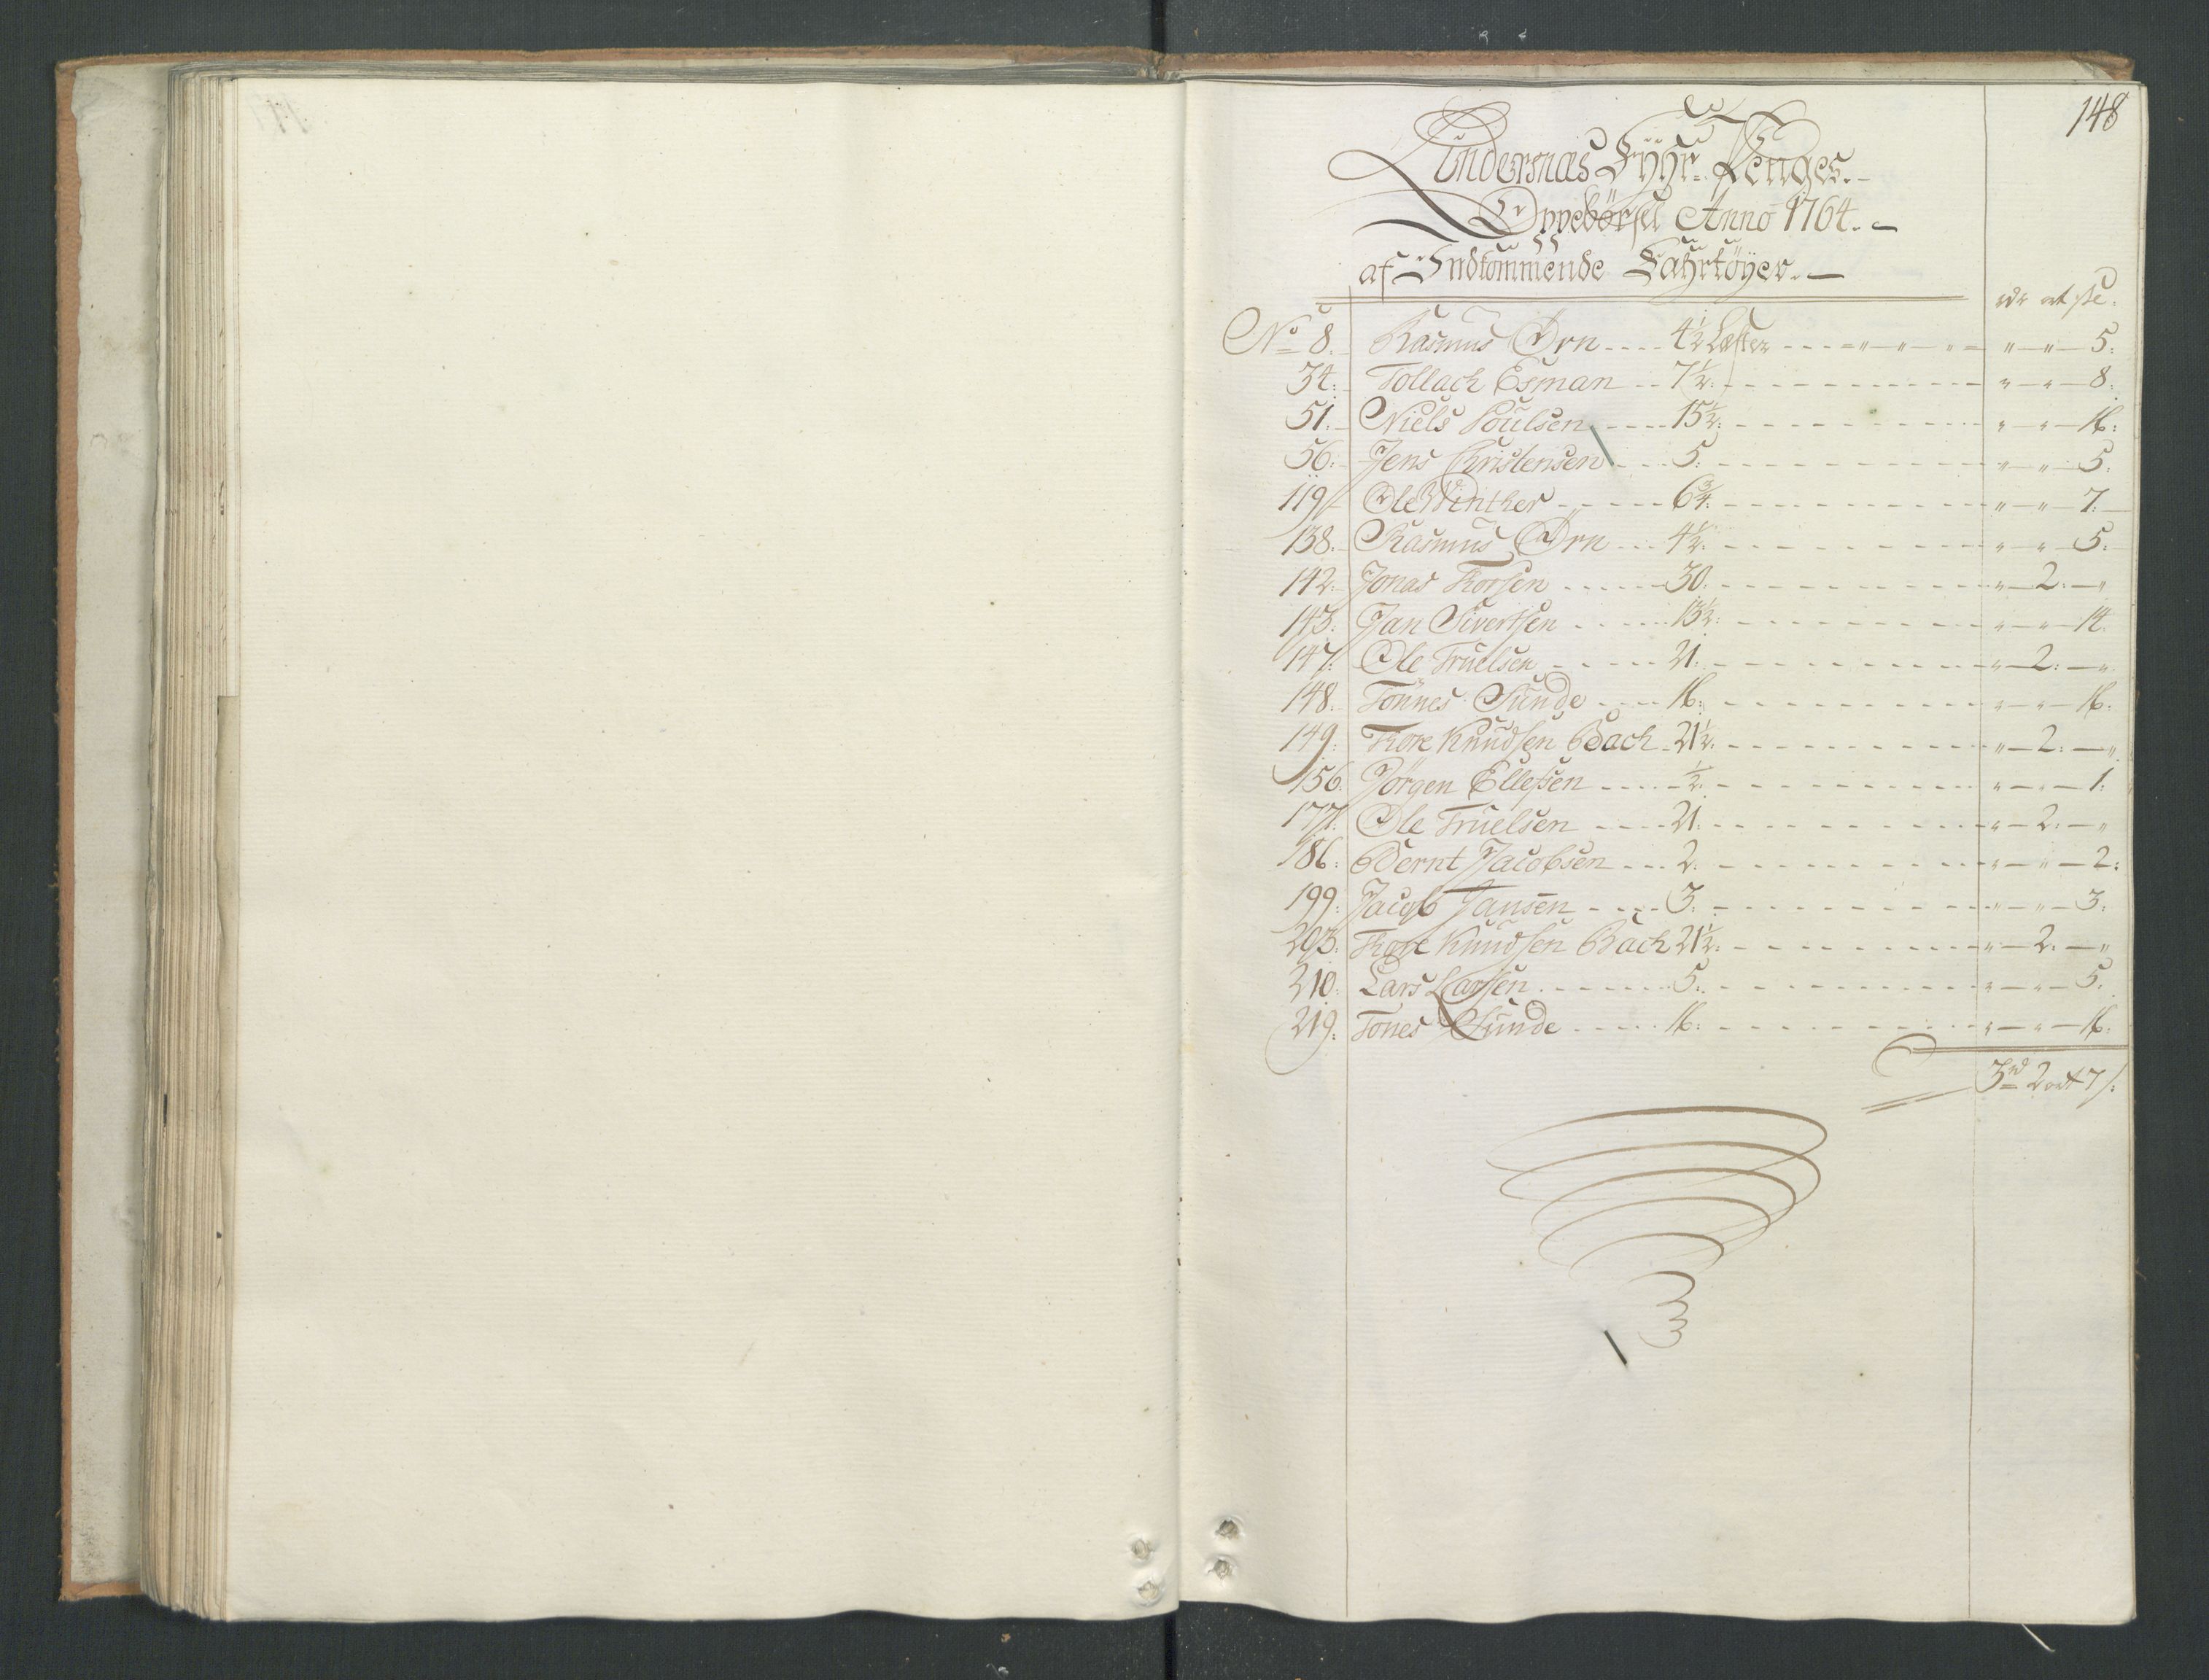 148
Lindersnæs Fyhr-Penges.
Oppebörsel Anno 1764.
af Indkommende Fahrtöyer.
rdr ort sk:
No 8. Rasmus Örn 4½ Læster " " 5:
34: Tollach Esman 7½: " " 8:
51. Niels Poulsen 15½: " " 16:
56. Jens Christensen 5: " " 5:
119 Ole Winther 6¾: " " 7.
138. Rasmus Örn 4½. " " 5:
142: Jonas Thorsen 30. " 2: "
143: Jan Sivertsen 13½: " " 14.
147: Ole Truelsen 21. " 2: "
148. Tönnes Sunde 16: " " 16:
149: Thore Knudsen Bach 21½. " 2: "
156: Jörgen Ellefsen ½. " " 1:
177: Ole Truelsen 21. " 2: "
186: Bernt Jacobsen 2. " " 2:
199: Jacob Jansen 3. " " 3:
203: Thore Knudsen Bach 21½: " 2. "
210: Lars Larsen 5: " " 5.
219: Tones Sunde 16: " " 16:
3rd 2 ort 7 s: